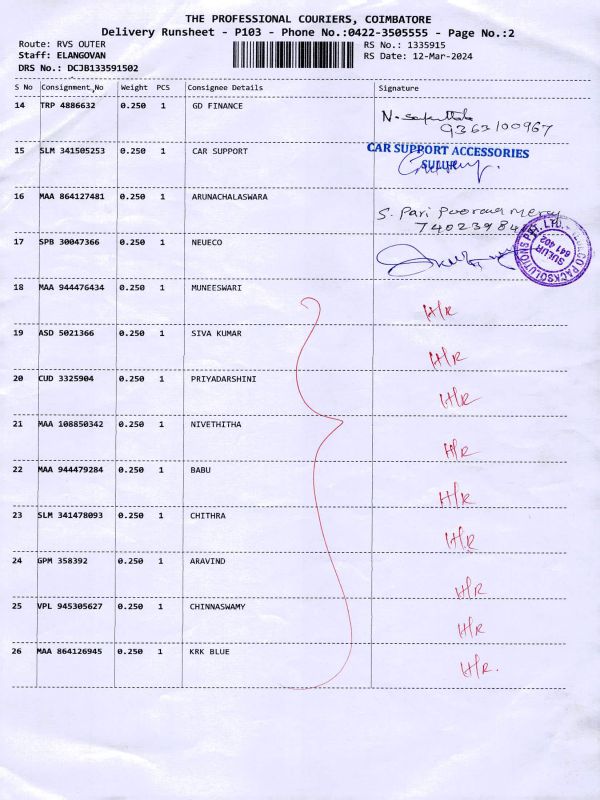 THE PROFESSIONAL COURIERS, COIMBATORE
Delivery Runsheet - P103 - Phone No.:0422-3505555 - Page No.:2
Route: RVS OUTER
RS No.: 1335915
Staff: ELANGOVAN
RS Date: 12-Mar-2024
DRS No.: DCJB133591502
S No Consignment No Weight PCS Consignee Details Signature
14 TRP 4886632 0.250 1 GD FINANCE
9363100967
15 SLM 341505253 0.250 1 CAR SUPPORT
CAR SUPPORT ACCESSORIES
SULUR
16 MAA 864127481 0.250 1 ARUNACHALASWARA
S. Pari Poorana Mercy
17 SPB 30047366 0.250 1 NEUECO
SULUR
641 402
18 MAA 944476434 0.250 1 MUNEESWARI H/R
19 ASD 5021366 0.250 1 SIVA KUMAR H/R
20 CUD 3325904 0.250 1 PRIYADARSHINI H/R
21 MAA 108850342 0.250 1 NIVETHITHA H/R
22 MAA 944479284 0.250 1 BABU H/R
23 SLM 341478093 0.250 1 CHITHRA H/R
24 GPM 358392 0.250 1 ARAVIND H/R
25 VPL 945305627 0.250 1 CHINNASWAMY H/R
26 MAA 864126945 0.250 1 KRK BLUE H/R.